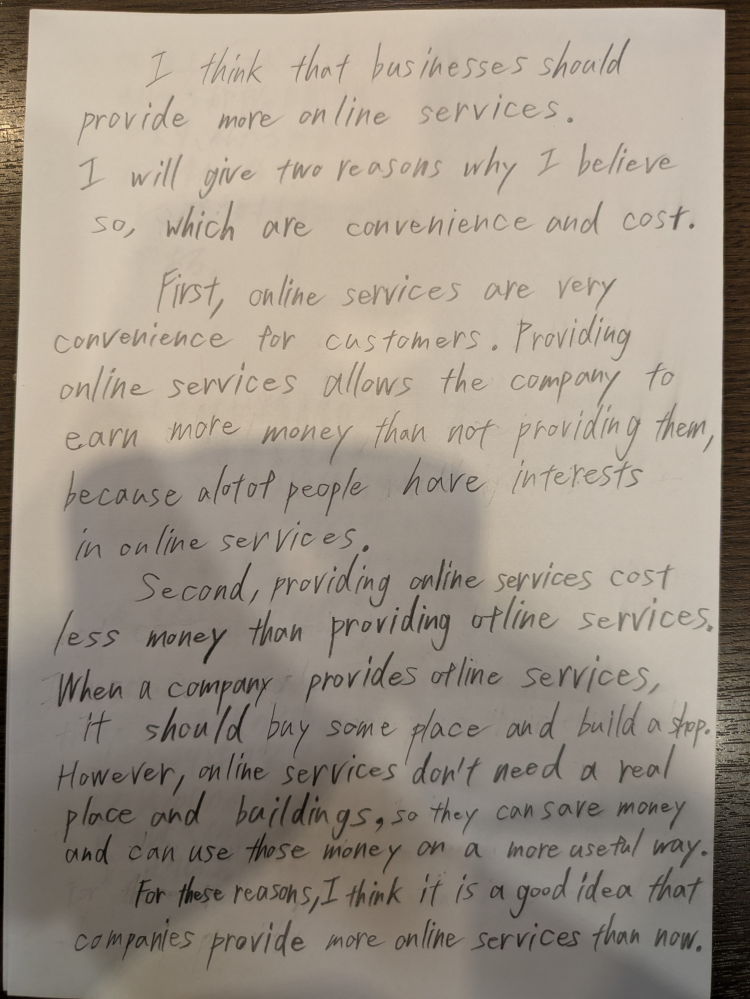 I think that businesses should
provide more online services.
I will give two reasons why I believe
so, which are convenience and cost.
First, online services are very
convenience for customers. Providing
online services allows the company to
earn more money than not providing them,
because alotof people have interests
in online services.
Second, providing online services cost
less money than providing ofline services.
When a company provides ofline services,
it should buy some place and build a shop.
However, online services don't need a real
place and buildings, so they can save money
and can use those money on a more useful way.
For these reasons, I think it is a good idea that
companies provide more online services than now.